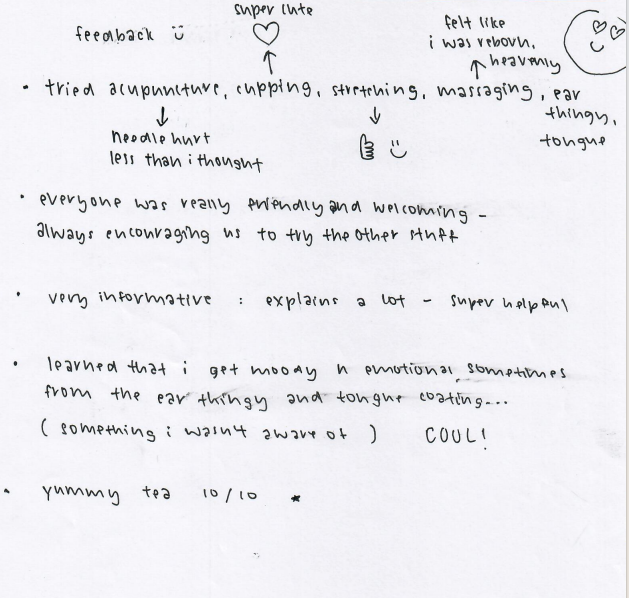 super cute
feedback
felt like
i was reborn,
heavenly
• tried acupuncture, cupping, stretching, massaging, ear
thingy,
tongue
needle hurt
less than i thought
• everyone was really friendly and welcoming -
always encouraging us to try the other stuff
• very informative : explains a lot - super helpful
• learned that i get moody n emotional sometimes
from the ear thingy and tongue coating...
( something i wasn't aware of ) COOL!
• yummy tea 10/10 ★